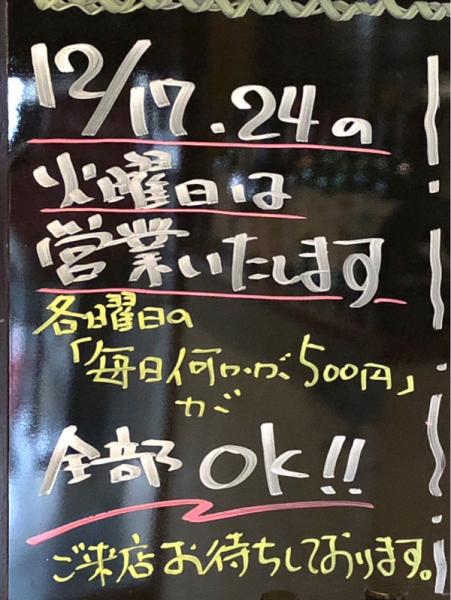 12/17・24の
火曜日は
営業いたします
各曜日の
「毎日何かが500円」
が
全部OK!!
ご来店お待ちしております。